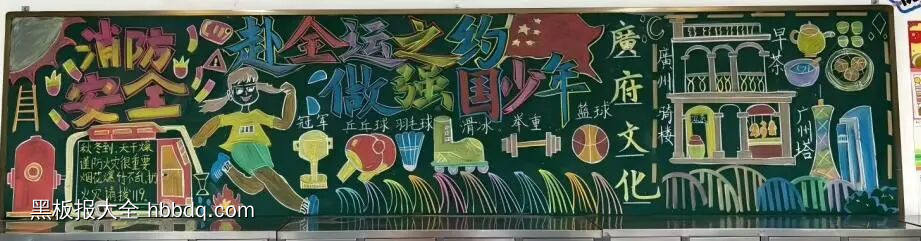 消防
安全
秋冬到,天干燥
谨防火灾很重要
烟花爆竹不乱玩
火灾请拨119
赴全运之约
做强国少年
冠军
乒乓球
羽毛球
滑冰
举重
篮球
廣府文化
廣州骑楼
早茶
广州塔
黑板报大全 hbbdq.com